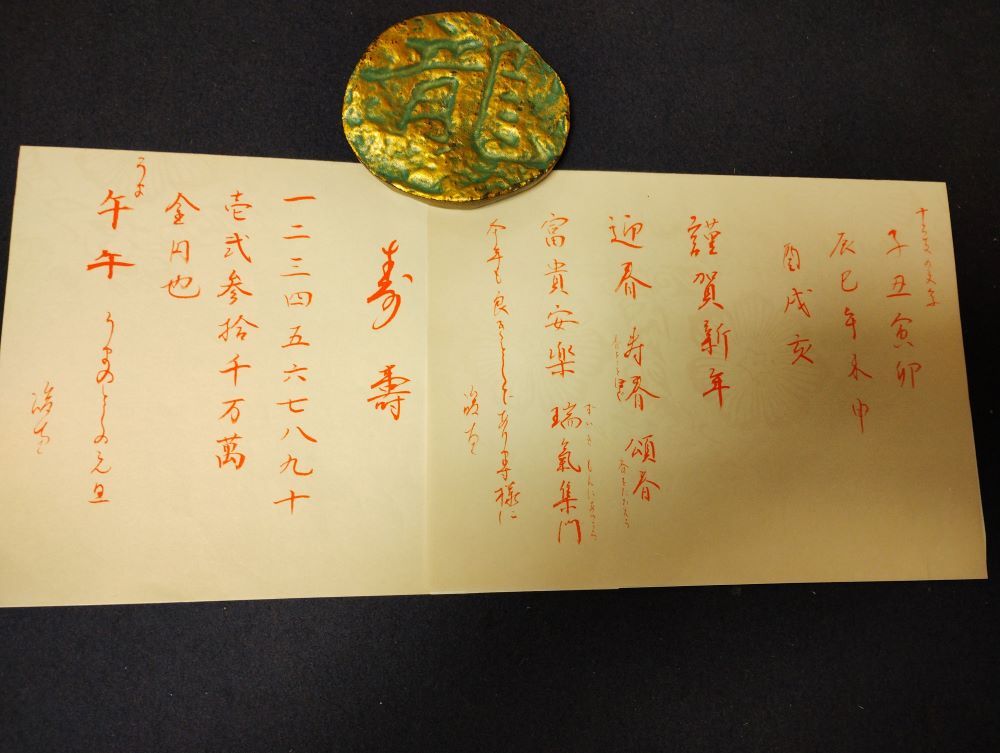 龍
十二支の文字
子丑寅卯
辰巳午未申
酉戌亥
謹賀新年
迎春 寿春 頌春
富貴安楽 瑞氣集門
ずいき もんにあつまる
今年も良きとしであります様に
寿 壽
一二三四五六七八九十
壱弐参拾千万萬
金円也
うま
午午 うまのとしの元旦